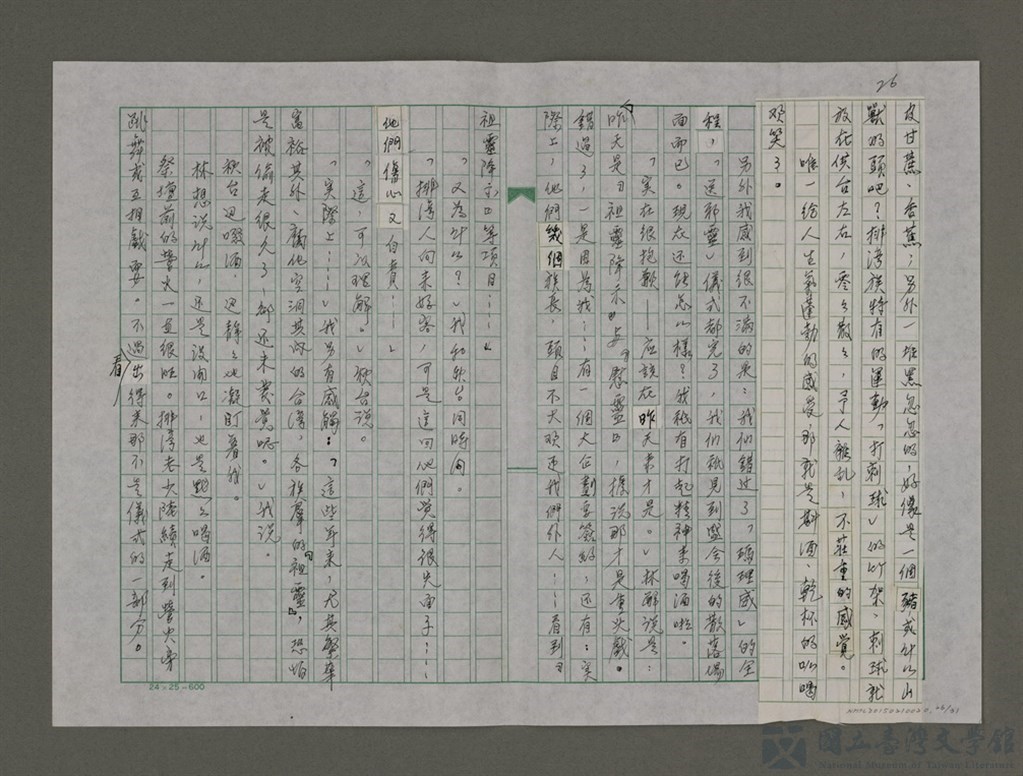 26
皮甘蔗、香蕉；另外一堆黑忽忽的，好像是一個豬或什么山
獸的頭吧？排灣族特有的運動「打刺球」的竹架、刺球就
放在供台左右，零零散散，予人雜亂，不莊重的感覺。
唯一給人生氣蓬勃的感受，那就是斟酒、乾杯的吆喝
歡笑了。
另外我感到很不滿的是：我們錯过了「瑪理感」的全
程，「送邪靈」儀式都完了，我们祇見到盛会後的散落場
面而已。現在还能怎么樣？我祇有打起精神来喝酒啦。
「实在很抱歉——应該在昨天来才是。」林解說是：
昨天是『祖靈降示』与『慰靈日』，據說那才是重头戲。
錯過了，一是因為我……有一個大企劃要簽好，还有：实
際上，他們幾個族長，頭目不大欢迎我們外人……看到『
祖靈降示』等項目……」
「又為什么？」我和秋台同時问。
「排灣人向来好客，可是這回他們覺得很失面子……
他們傷心又自責……」
「這，可以理解。」秋台說。
「实際上……」我另有感觸：「這些年来，尤其繁華
富裕其外、腐化空洞其内的台灣，各族羣的『祖靈』，恐怕
是被偷走很久了，卻还未發覺呢。」我說。
秋台迅啜酒，迅靜靜地凝盯著我。
林想說什么，还是没開口，也是默默喝酒。
祭壇前的營火一直很旺。排灣老少陸續走到營火旁
跳舞或互相戲耍。不過看出得来那不是儀式的一部分。
24×25=600
國立臺灣文學館
National Museum of Taiwan Literature